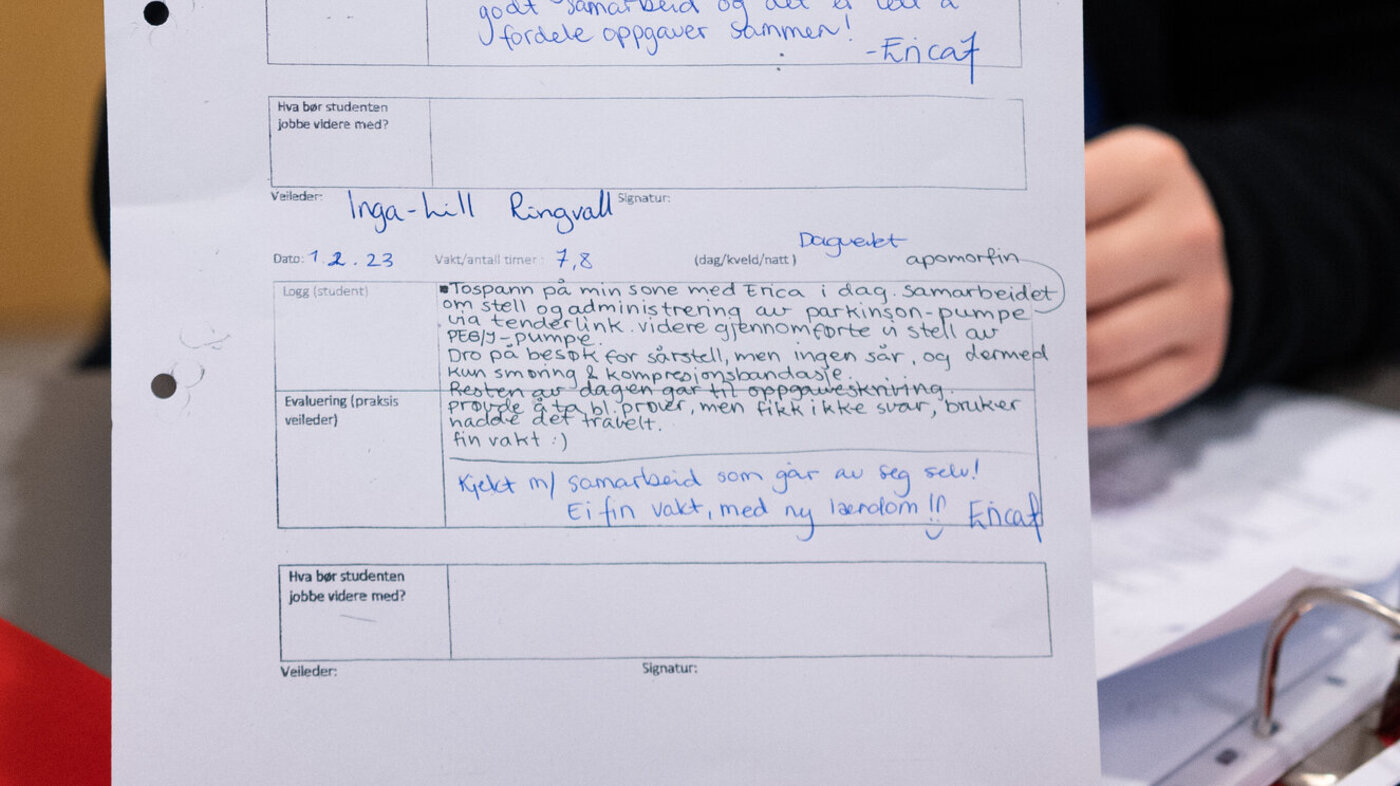 godt samarbeid og det er lett å
fordele oppgaver sammen!
-Erica F
Hva bør studenten
jobbe videre med?
Veileder: Inga-Lill Ringvall Signatur:
Dato: 1.2.23 Vakt/antall timer: 7,8 (dag/kveld/natt) Dagvakt
apomorfin
Logg (student)
Tospann på min sone med Erica i dag. Samarbeidet
om stell og administrering av parkinson-pumpe
via tenderlink. videre gjennomførte vi stell av
PEG/J-pumpe.
Dro på besøk for sårstell, men ingen sår, og dermed
kun smøring & kompresjonsbandasje.
Resten av dagen går til oppgaveskriving.
Evaluering (praksis
veileder)
prøvde å ta bl.prøver, men fikk ikke svar, bruker
hadde det travelt.
fin vakt :)
Kjekt m/ samarbeid som går av seg selv!
Ei fin vakt, med ny lærdom!! Erica F
Hva bør studenten
jobbe videre med?
Veileder: Signatur: